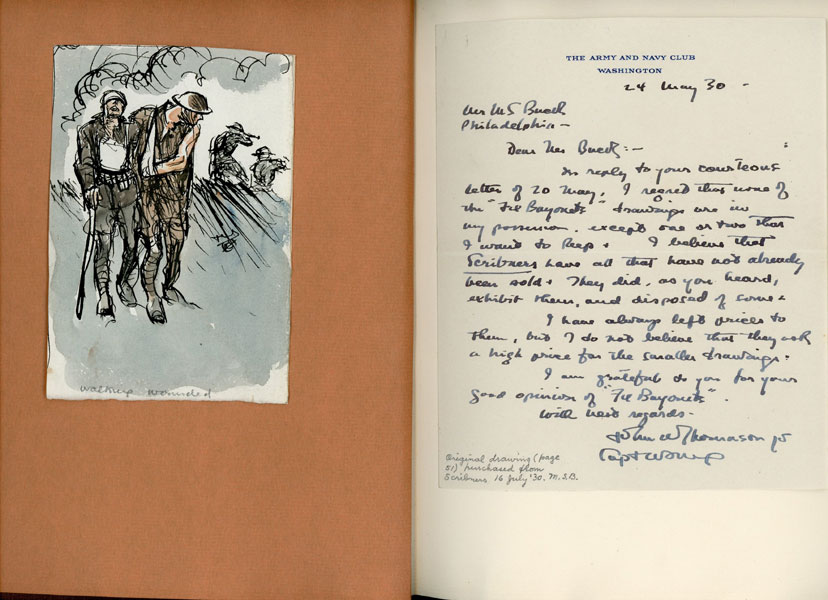 walking wounded
THE ARMY AND NAVY CLUB
WASHINGTON
24 May 30 -
Mr M S Buck
Philadelphia -
Dear Mr Buck: -
In reply to your courteous
letter of 20 May, I regret that none of
the "Fix Bayonets" drawings are in
my possession, except one or two that
I want to keep. I believe that
Scribners have all that have not already
been sold. They did, as you heard,
exhibit them, and disposed of some.
I have always left prices to
them, but I do not believe that they ask
a high price for the smaller drawings.
I am grateful to you for your
good opinion of "Fix Bayonets".
With best regards -
John W Thomason jr
Capt USMC
Original drawing (page
51) purchased from
Scribners 16 July '30. M.S.B.